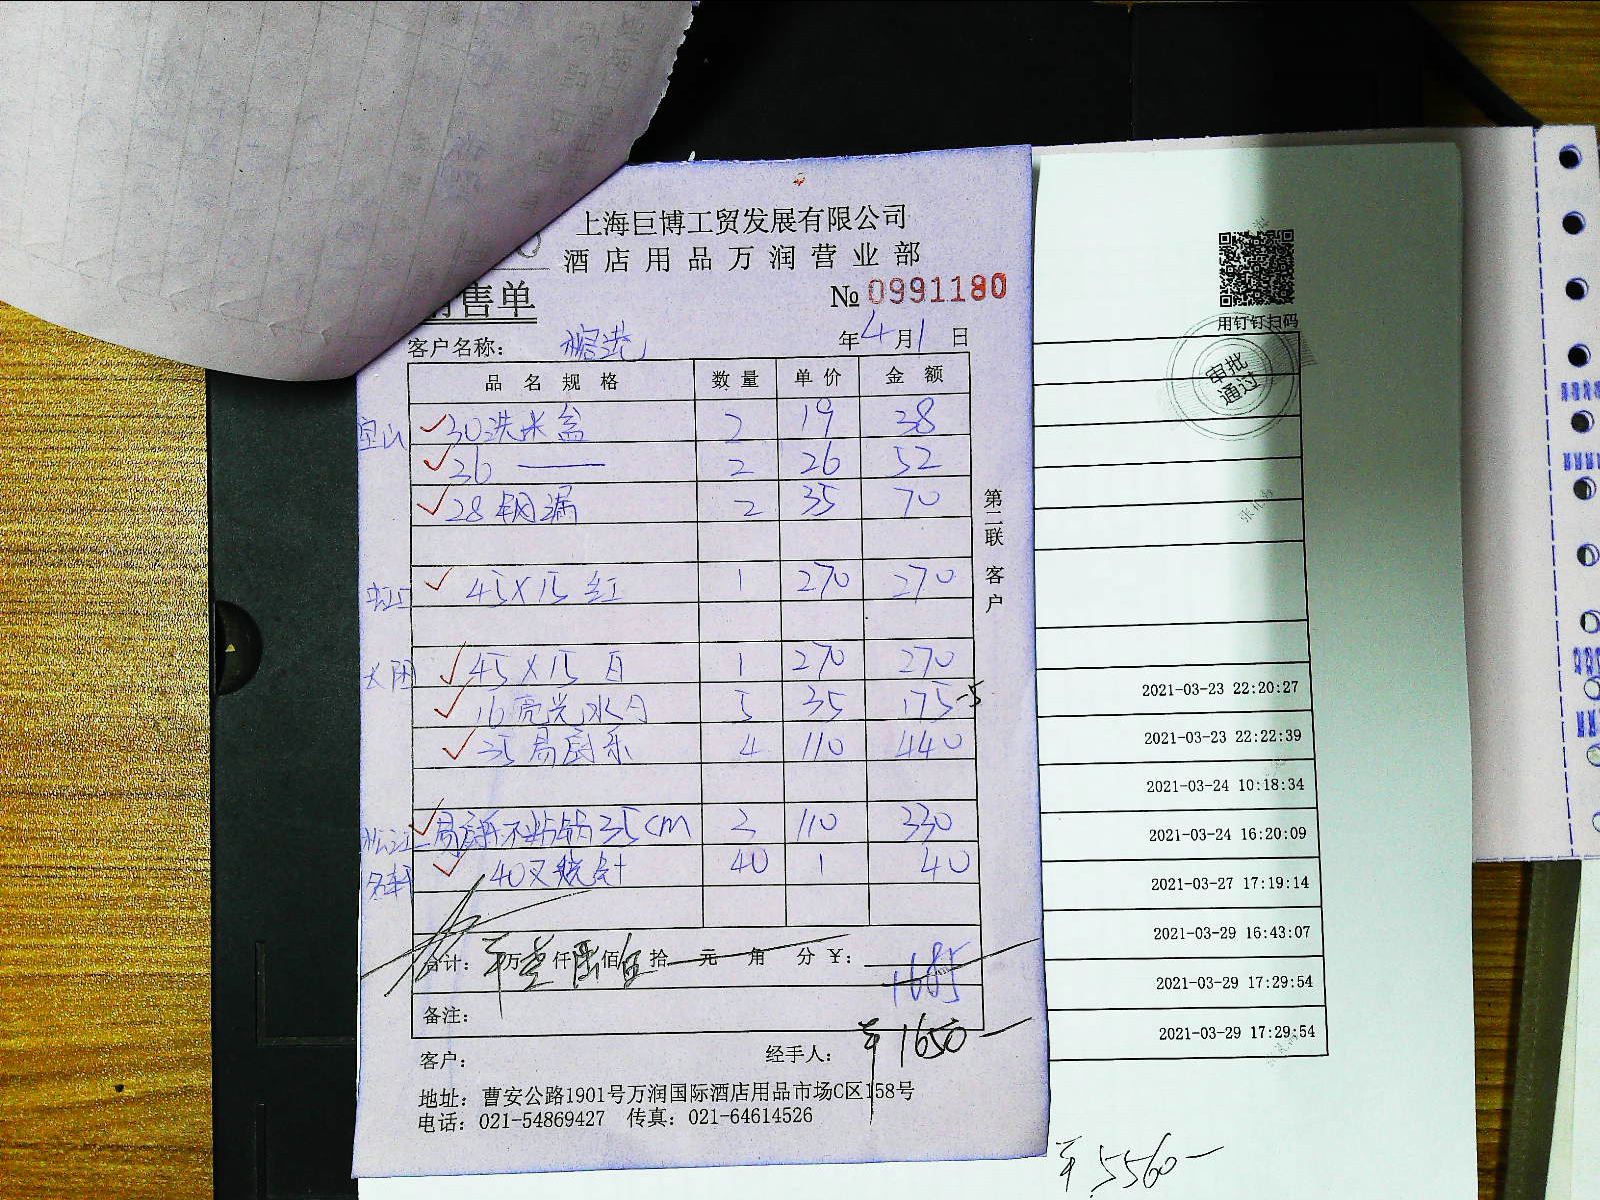 上海巨博工贸发展有限公司
酒店用品万润营业部
售单
№ 0991180
客户名称：
年4月1日
品名规格 数量 单价 金额
宝山 30洗米盆 2 19 38
26 —— 2 26 52
28 钢漏 2 35 70
45X15 红 1 270 270
45X15 白 1 270 270
16 亮光水勺 5 35 175 -5
35 易厨乐 4 110 440
松江 易厨乐不粘锅35cm 3 110 330
名轩 40叉烧针 40 1 40
合计： 万壹仟陆佰伍拾 元 角 分 ¥： 1685
备注：
¥1650
客户： 经手人：
地址：曹安公路1901号万润国际酒店用品市场C区158号
电话：021-54869427 传真：021-64614526
第二联 客户
用钉钉扫码
审批
通过
2021-03-23 22:20:27
2021-03-23 22:22:39
2021-03-24 10:18:34
2021-03-24 16:20:09
2021-03-27 17:19:14
2021-03-29 16:43:07
2021-03-29 17:29:54
2021-03-29 17:29:54
¥5560